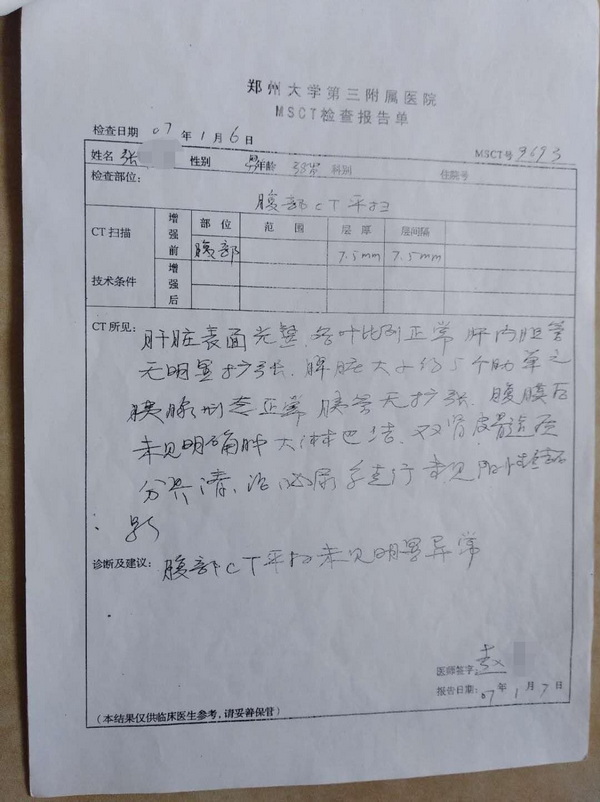 郑州大学第三附属医院
MSCT检查报告单
检查日期 07 年 1 月 6 日
MSCT号 9693
姓名 张 性别 男 年龄 科别 住院号
检查部位: 腹部CT平扫
CT扫描 增强前 部位 范围 层厚 层间隔
腹部 7.5mm 7.5mm
技术条件 增强后
CT所见: 肝脏表面光整、各叶比例正常 肝内胆管
无明显扩张、脾脏大小约5个肋单元
胰腺形态正常 胰管无扩张、腹膜后
未见明确肿大淋巴结、双肾皮髓质
分界清、沿泌尿系走行未见阳性结石
影
诊断及建议: 腹部CT平扫未见明显异常
医师签字: 赵
报告日期: 07 年 1 月 7 日
(本结果仅供临床医生参考,请妥善保管)